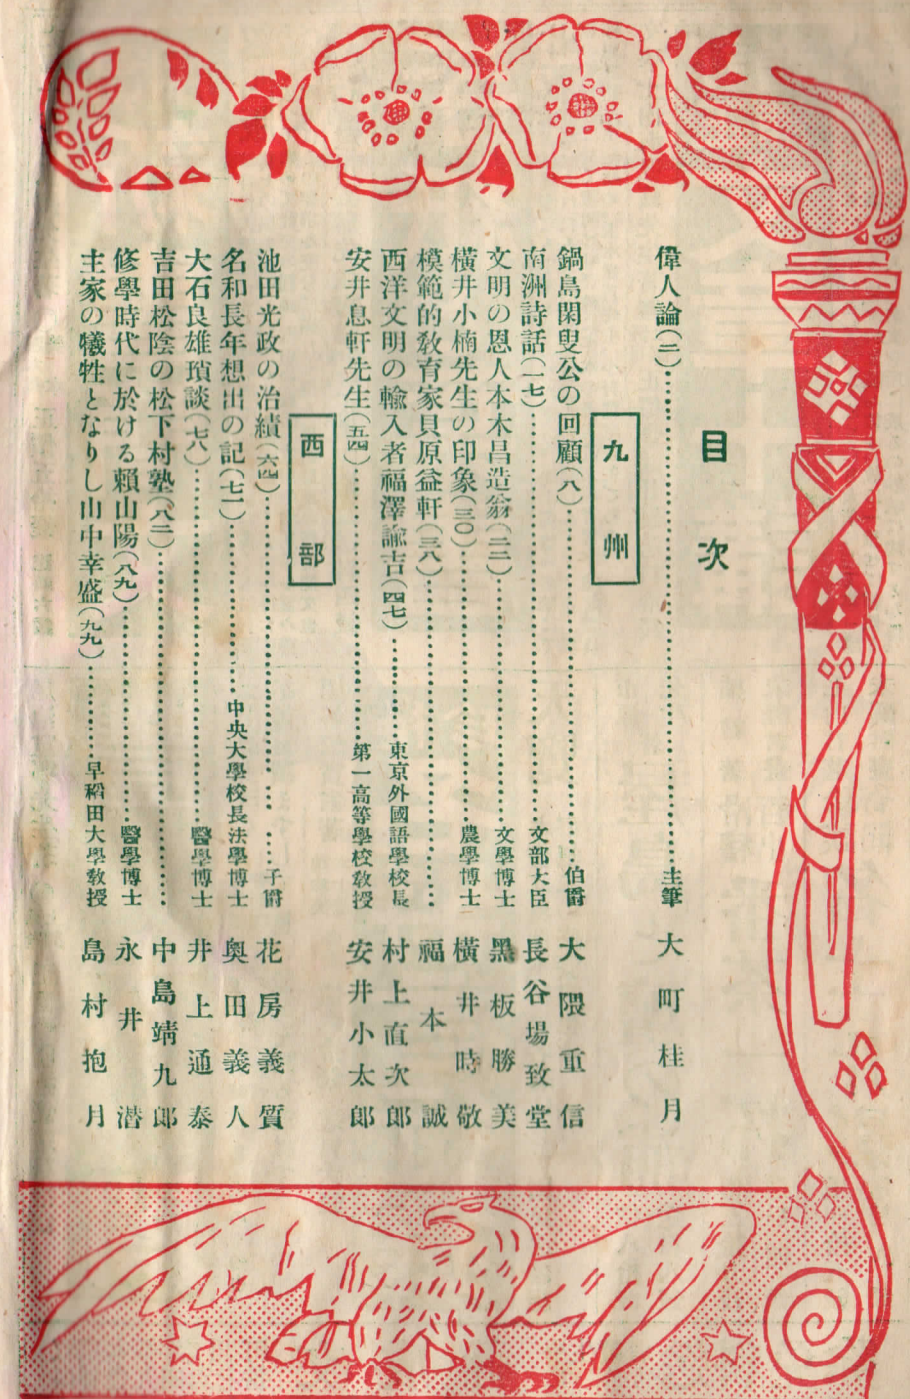 目次
偉人論(二)…………主筆 大町桂月
九州
鍋島閑叟公の回顧(八)…………伯爵 大隈重信
南洲詩話(一七)…………文部大臣 長谷場致堂
文明の恩人本木昌造翁(二二)…………文學博士 黑板勝美
橫井小楠先生の印象(三〇)…………農學博士 橫井時敬
模範的敎育家貝原益軒(三八)…………福本誠
西洋文明の輸入者福澤諭吉(四七)…………東京外國語學校長 村上直次郎
安井息軒先生(五四)…………第一高等學校敎授 安井小太郎
西部
池田光政の治績(六四)…………子爵 花房義質
名和長年想出の記(七一)…………中央大學校長法學博士 奧田義人
大石良雄瑣談(七八)…………醫學博士 井上通泰
吉田松陰の松下村塾(八三)…………中島靖九郎
修學時代に於ける賴山陽(八九)…………醫學博士 永井潜
主家の犧牲となりし山中幸盛(九九)…………早稻田大學敎授 島村抱月